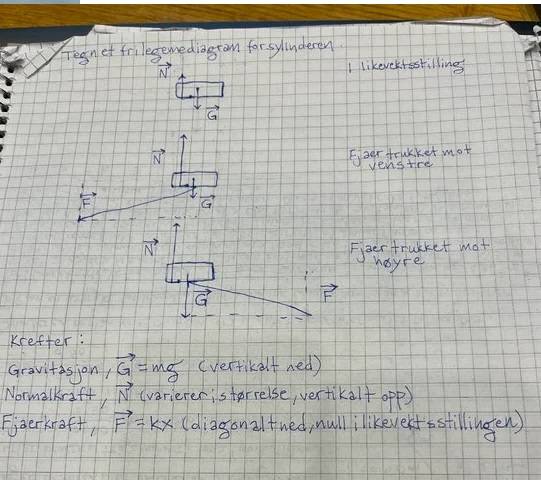 Tegnet frilegemediagram for sylinderen.
N
I likevektsstilling
G
N
Fjaer trukket mot
venstre
F
G
N
Fjaer trukket mot
høyre
G
F
Krefter:
Gravitasjon, G = mg (vertikalt ned)
Normalkraft, N (varierer i størrelse, vertikalt opp)
Fjaerkraft, F = kx (diagonalt ned, null i likevektsstillingen)